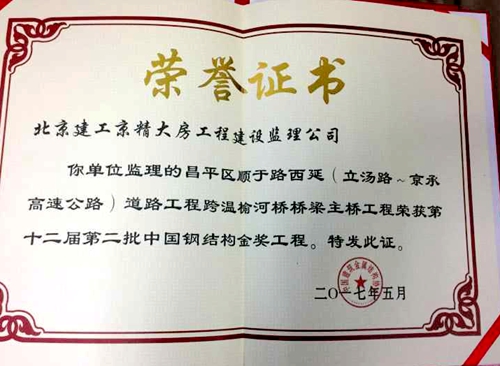 荣誉证书
北京建工京精大房工程建设监理公司
你单位监理的昌平区顺于路西延（立汤路~京承
高速公路）道路工程跨温榆河桥桥梁主桥工程荣获第
十二届第二批中国钢结构金奖工程。特发此证。
中国建筑金属结构协会
二〇一七年五月